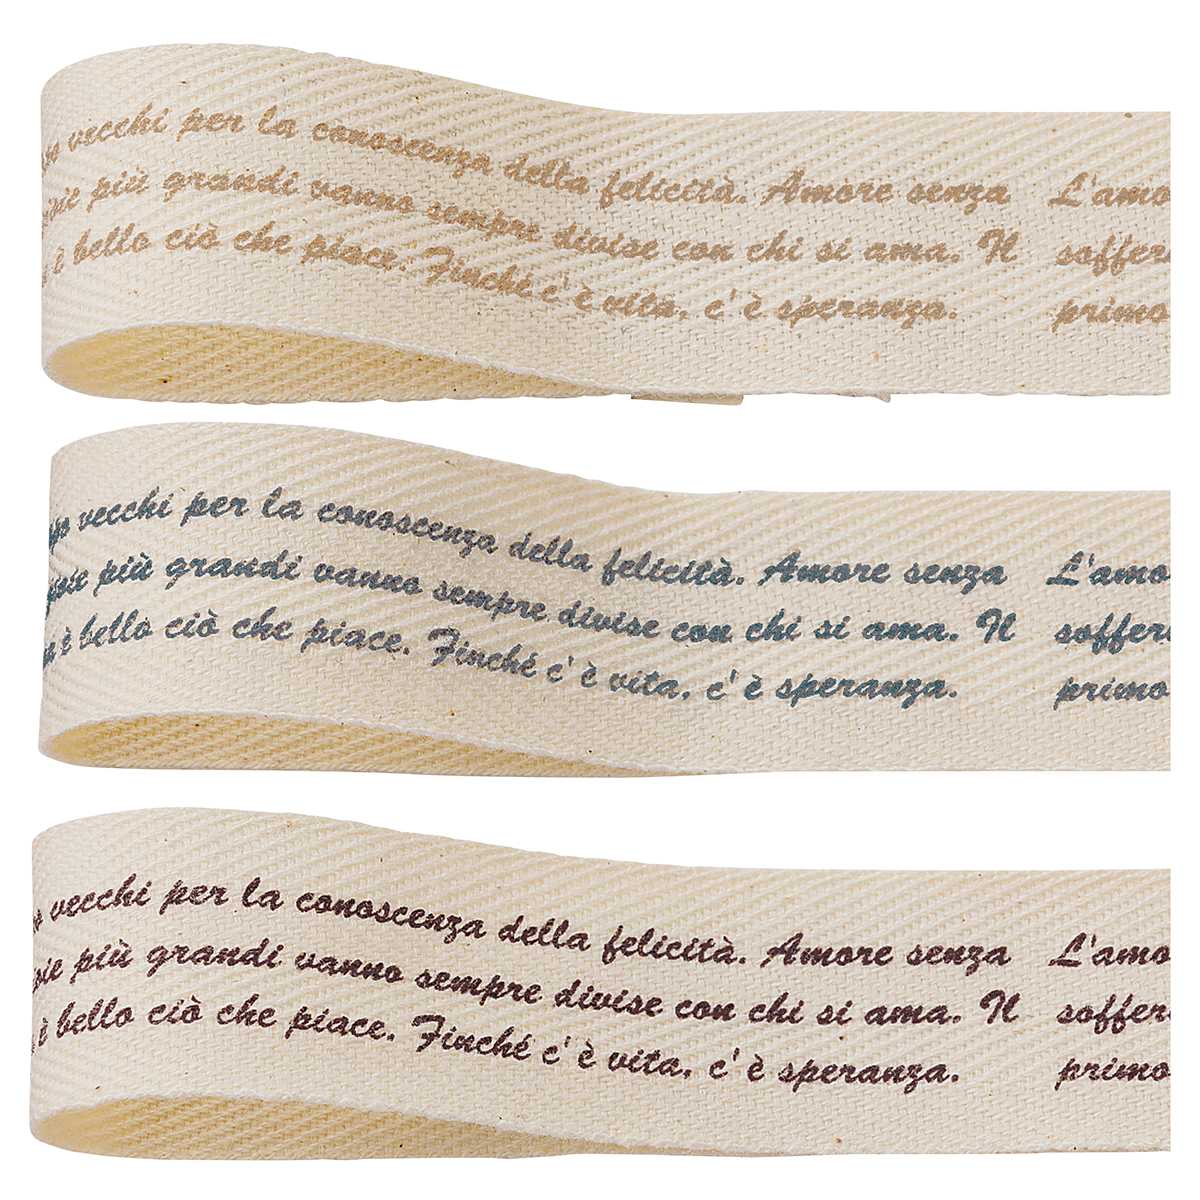 vecchi per la conoscenza della felicità. Amore senza L'amo
più grandi vanno sempre divise con chi si ama. Il soffer
è bello ciò che piace. Finché c'è vita, c'è speranza. primo
vecchi per la conoscenza della felicità. Amore senza L'amo
più grandi vanno sempre divise con chi si ama. Il soffer
è bello ciò che piace. Finché c'è vita, c'è speranza. primo
vecchi per la conoscenza della felicità. Amore senza L'amo
più grandi vanno sempre divise con chi si ama. Il soffer
è bello ciò che piace. Finché c'è vita, c'è speranza. primo